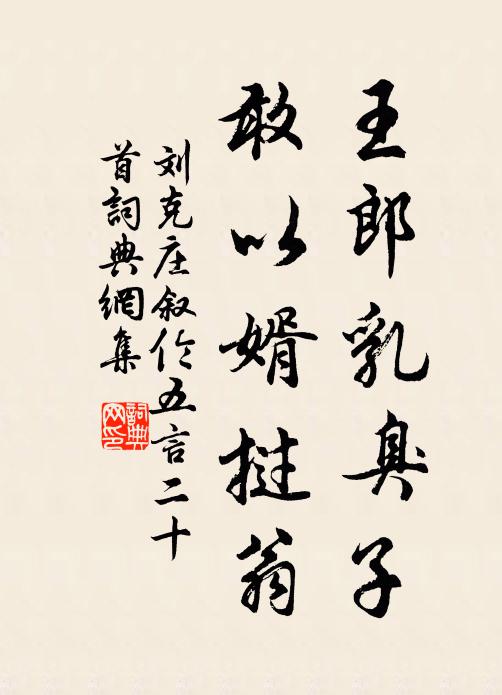 王郎乳臭子
敢以婿挞翁
刘克庄叙伦五言二十
首詞典網集
詞典网印